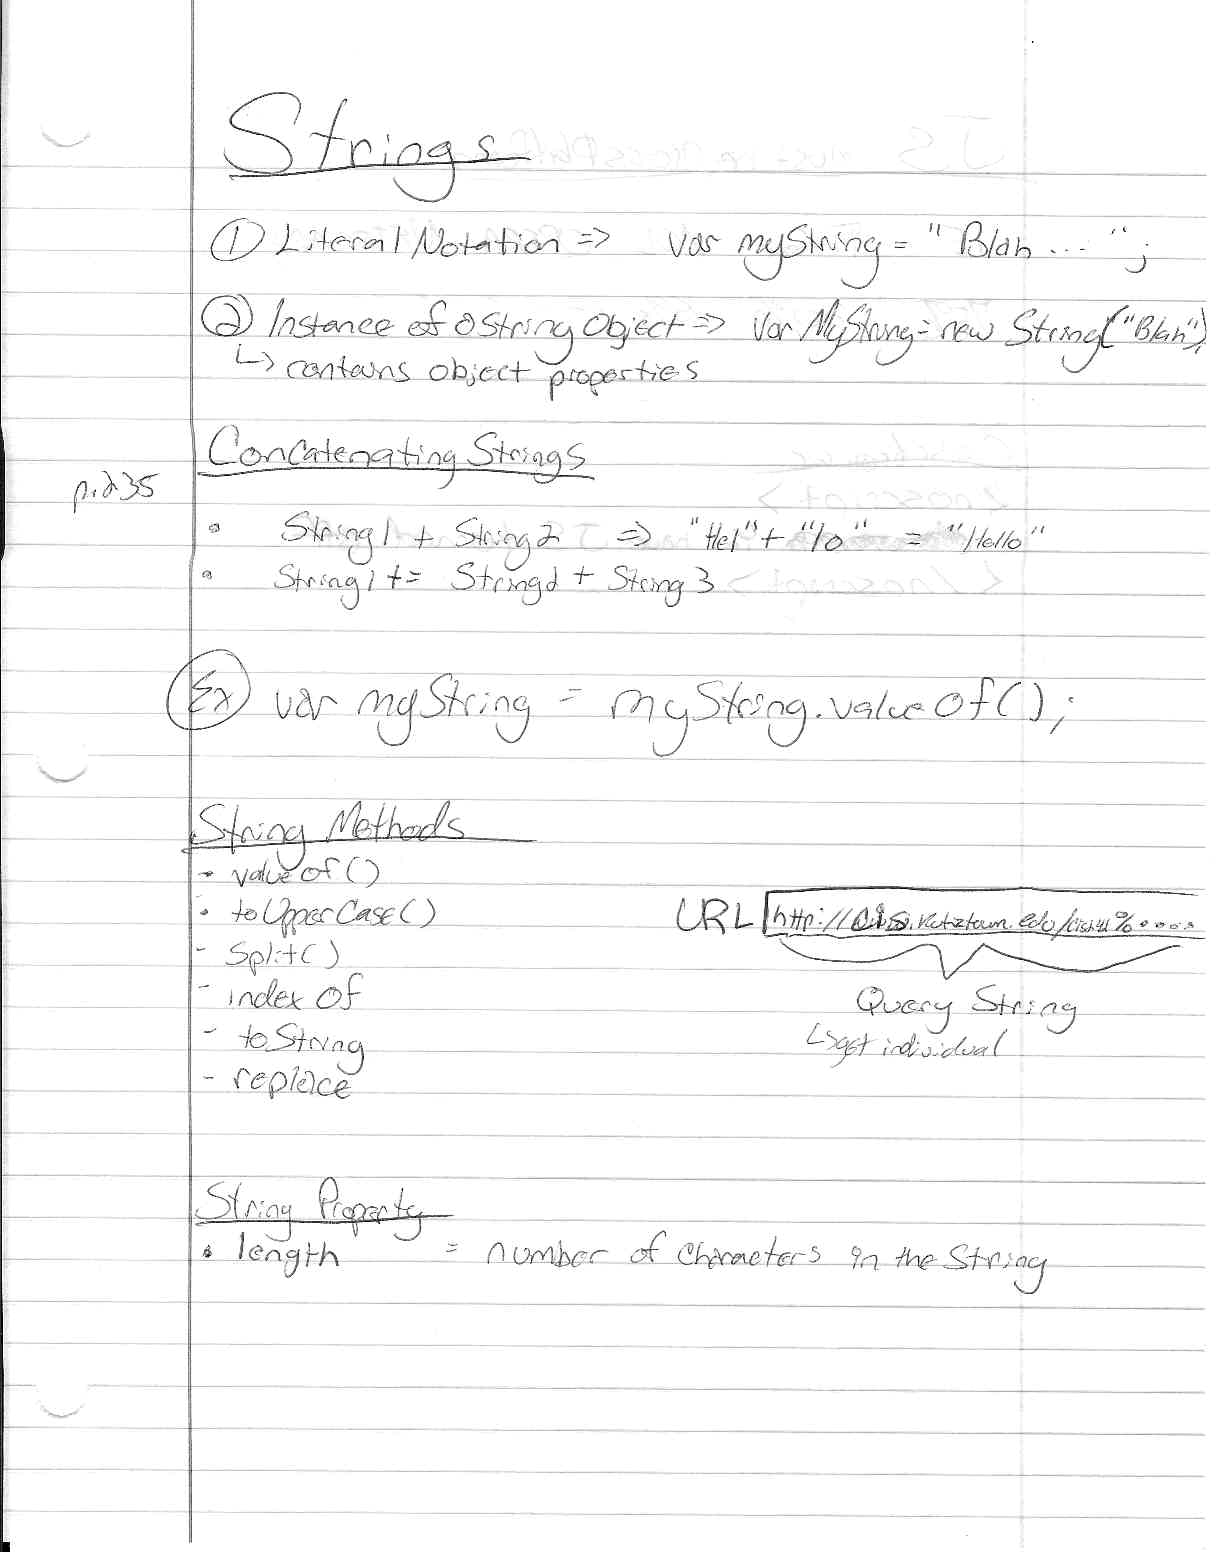 Strings
① Literal Notation => var myString = "Blah ... ";
② Instance of a String Object => var MyString = new String("Blah");
↳ contains object properties
Concatenating Strings
p.235
• String1 + String2 => "Hel" + "lo" = "Hello"
• String1 += String2 + String3
Ex var myString = myString.valueOf();
String Methods
- valueOf()
• toUpperCase()
- Split()
- index Of
- toString
- replace
URL http:// .kutztown.edu/
Query String
↳ get individual
String Property
• length = number of characters in the String